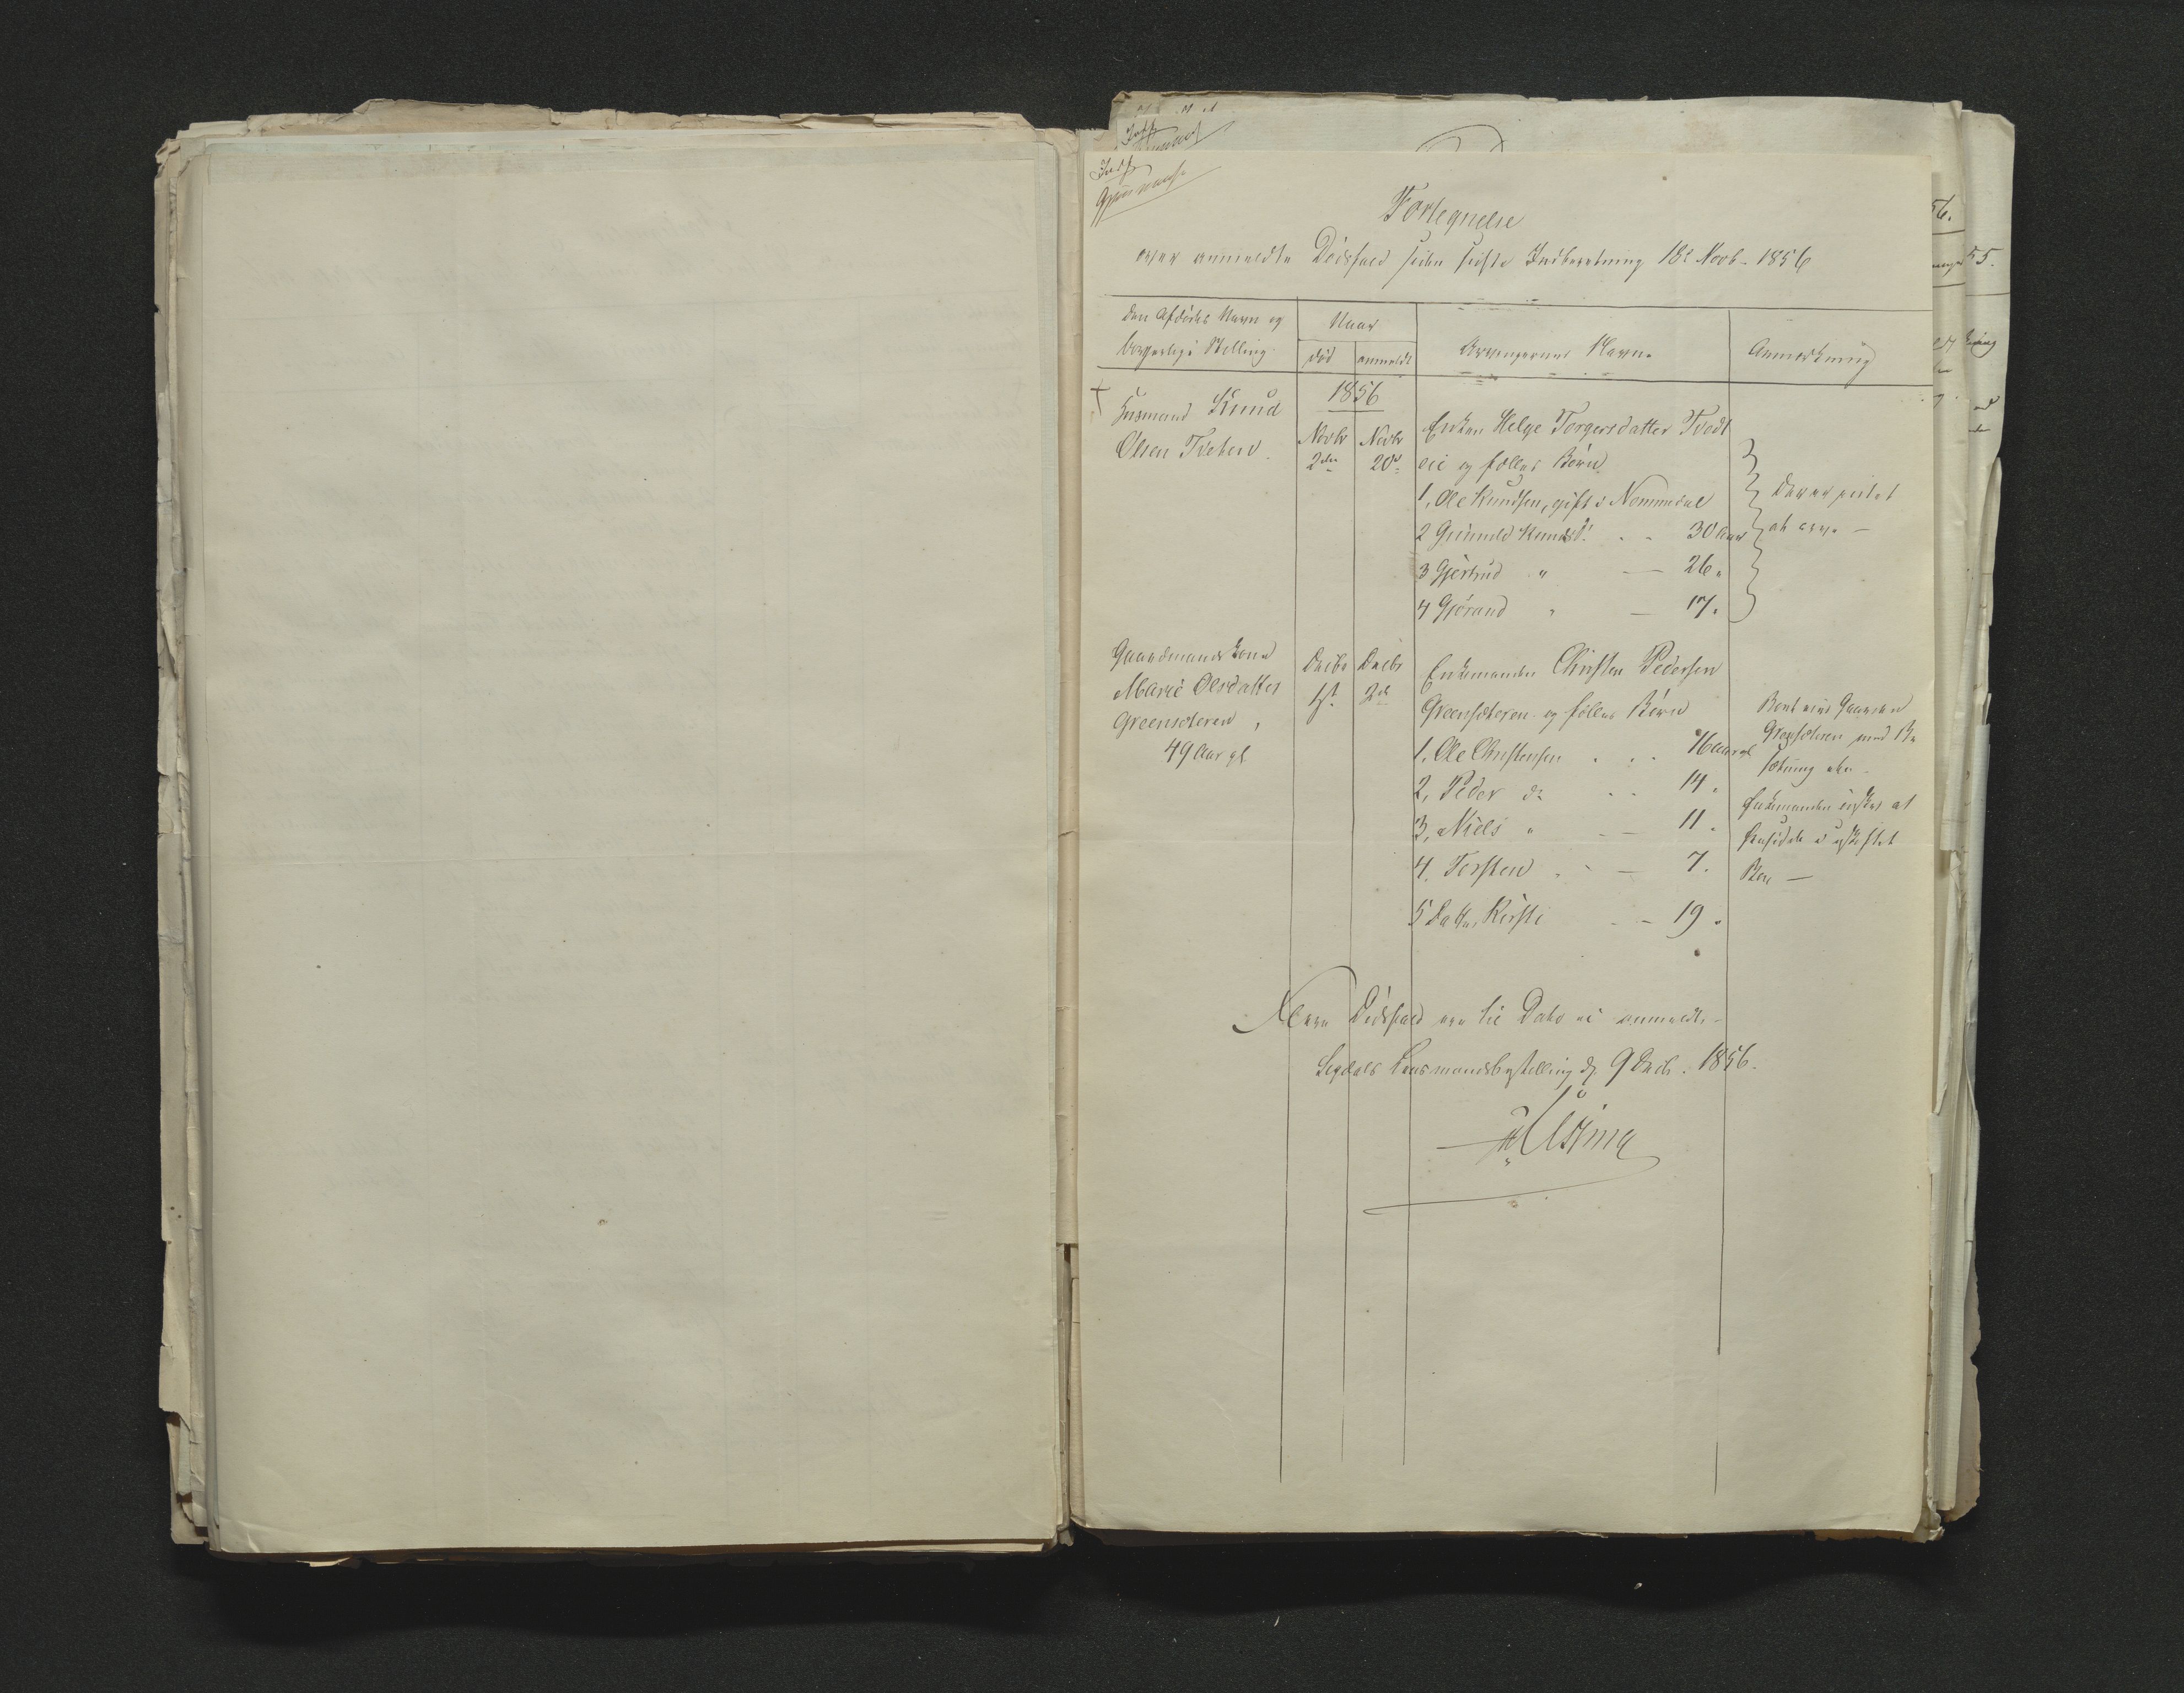 Indf
Fortegnelse
over anmeldte Dødsfald siden sidste Indberetning 18d Novb. 1856
Den Afdødes Navn og
borgerlige Stilling
Naar
død
anmeldt
Arvingernes Navne
Anmærkning
1856
Husmand Knud
Olsen Tveten.
Novbr
2den
Novbr
20d
Enken Helge Torgersdatter Tvedt
eie og fælles Børn
1, Ole Knudsen, gift i Nommedal
2 Gunnild Knudsd. . . 30 Aar
3 Gjertrud " — 26 "
4 Gjørand " — 17.
Der er intet
at arve —
Gaardmandskone
Marie Olsdatter
Greensæteren,
49 Aar gl
Decbr
1st.
Decbr
2d
Enkemanden Christen Pedersen
Greensæteren og fælles Børn
1. Ole Christensen . . . 16 Aar gl
2, Peder do . . 14 .
3, Niels " . — 11 .
4. Torsten . . — 7.
5 Datter Kirsti . — 19 .
Boet eier Gaarden
Greensæteren med Be
sætning
Enkemanden ønsker at
hensidde i uskiftet
Boe —
Flere Dødsfald ere til Dato ei anmeldte.
Sigdals Lensmandsbestilling d. 9 Decb. 1856.